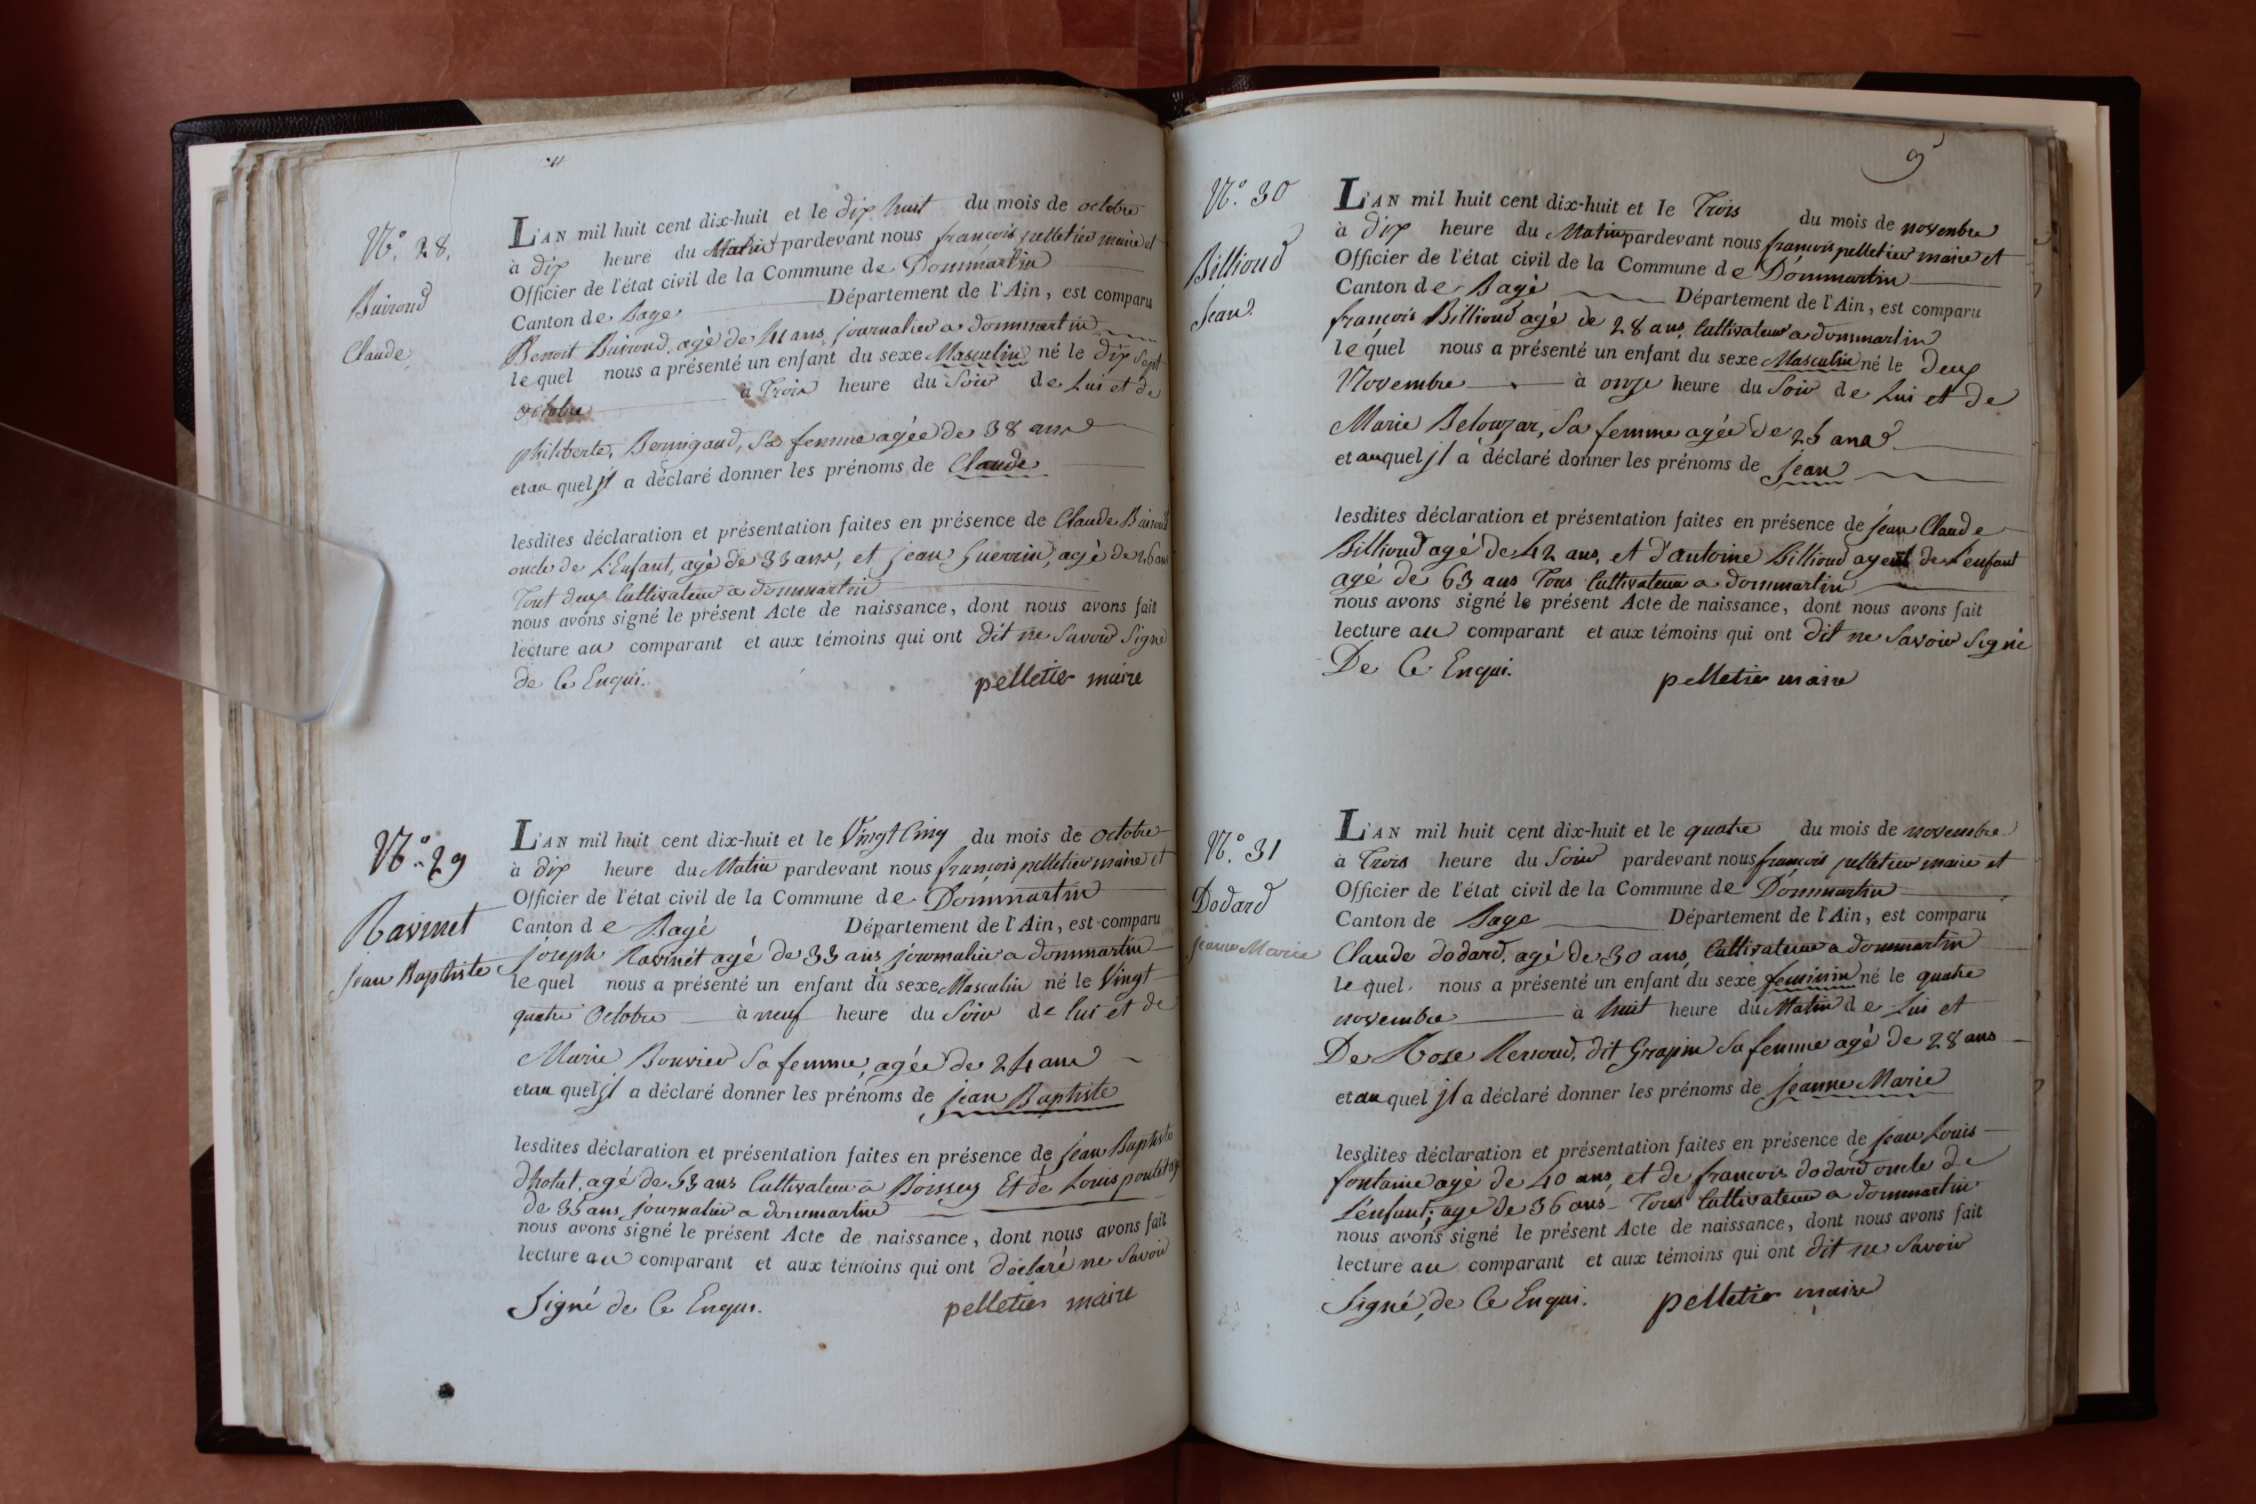 N.º 28.
Buiroud
Claude
L'AN mil huit cent dix-huit et le dix huit du mois de octobre
à dix heure du Matin pardevant nous françois pelletier maire et
Officier de l'état civil de la Commune de Dommartin
Canton de Bagé Département de l'Ain, est comparu
Benoit Buiroud, agé de 41 ans, journalier a dommartin
lequel nous a présenté un enfant du sexe Masculin né le dix Sept
octobre à Trois heure du Soir de Lui et de
philiberte, Sa femme agée de 38 ans
et au quel jl a déclaré donner les prénoms de Claude
lesdites déclaration et présentation faites en présence de Claude Buiroud
oncle de L'Enfant, agé de 33 ans, et jean Guerrin, agé de 26 ans
Tout deux Cultivateur a dommartin
nous avons signé le présent Acte de naissance, dont nous avons fait
lecture au comparant et aux témoins qui ont dit ne Savoir Signé
de Ce Enqui.
pelletier maire
N.º 29
Ravinet
jean Baptiste
L'AN mil huit cent dix-huit et le Vingt Cinq du mois de octobre
à dix heure du Matin pardevant nous françois pelletier maire et
Officier de l'état civil de la Commune de Dommartin
Canton de Bagé Département de l'Ain, est comparu
joseph Ravinet agé de 33 ans journalier a dommartin
lequel nous a présenté un enfant du sexe Masculin né le Vingt
quatre Octobre à neuf heure du Soir de lui et de
Marie Bouvier Sa femme, agée de 24 ans
et au quel jl a déclaré donner les prénoms de jean Baptiste
lesdites déclaration et présentation faites en présence de jean Baptiste
agé de 53 ans Cultivateur a Boissey Et de Louis
de 35 ans journalier a dommartin
nous avons signé le présent Acte de naissance, dont nous avons fait
lecture au comparant et aux témoins qui ont déclaré ne Savoir
Signé de Ce Enqui.
pelletier maire
9
N.º 30
Billioud
jean
L'AN mil huit cent dix-huit et le Trois du mois de novembre
à dix heure du Matin pardevant nous françois pelletier maire et
Officier de l'état civil de la Commune de Dommartin
Canton de Bagé Département de l'Ain, est comparu
françois Billioud agé de 28 ans, Cultivateur a dommartin
lequel nous a présenté un enfant du sexe Masculin né le deux
Novembre à onze heure du Soir de Lui et de
Marie Belouzar, Sa femme agée de 25 ans
et au quel jl a déclaré donner les prénoms de jean
lesdites déclaration et présentation faites en présence de jean Claude
Billioud agé de 42 ans, et d'antoine Billioud ayeul de L'enfant
agé de 63 ans Tous Cultivateur a dommartin
nous avons signé le présent Acte de naissance, dont nous avons fait
lecture au comparant et aux témoins qui ont dit ne Savoir Signé
De Ce Enqui.
pelletier maire
N.º 31
Dodard
jeanne Marie
L'AN mil huit cent dix-huit et le quatre du mois de novembre
à Trois heure du Soir pardevant nous françois pelletier maire et
Officier de l'état civil de la Commune de Dommartin
Canton de Bagé Département de l'Ain, est comparu
Claude dodard, agé de 30 ans, Cultivateur a dommartin
lequel nous a présenté un enfant du sexe feminin né le quatre
novembre à huit heure du Matin de Lui et
De Rose Renoud, dit Grapin Sa femme agé de 28 ans
et au quel jl a déclaré donner les prénoms de jeanne Marie
lesdites déclaration et présentation faites en présence de jean Louis
fontaine agé de 40 ans, et de françois dodard oncle de
L'enfant, agé de 36 ans Tous Cultivateur a dommartin
nous avons signé le présent Acte de naissance, dont nous avons fait
lecture au comparant et aux témoins qui ont dit ne Savoir
Signé, de Ce Enqui.
pelletier maire